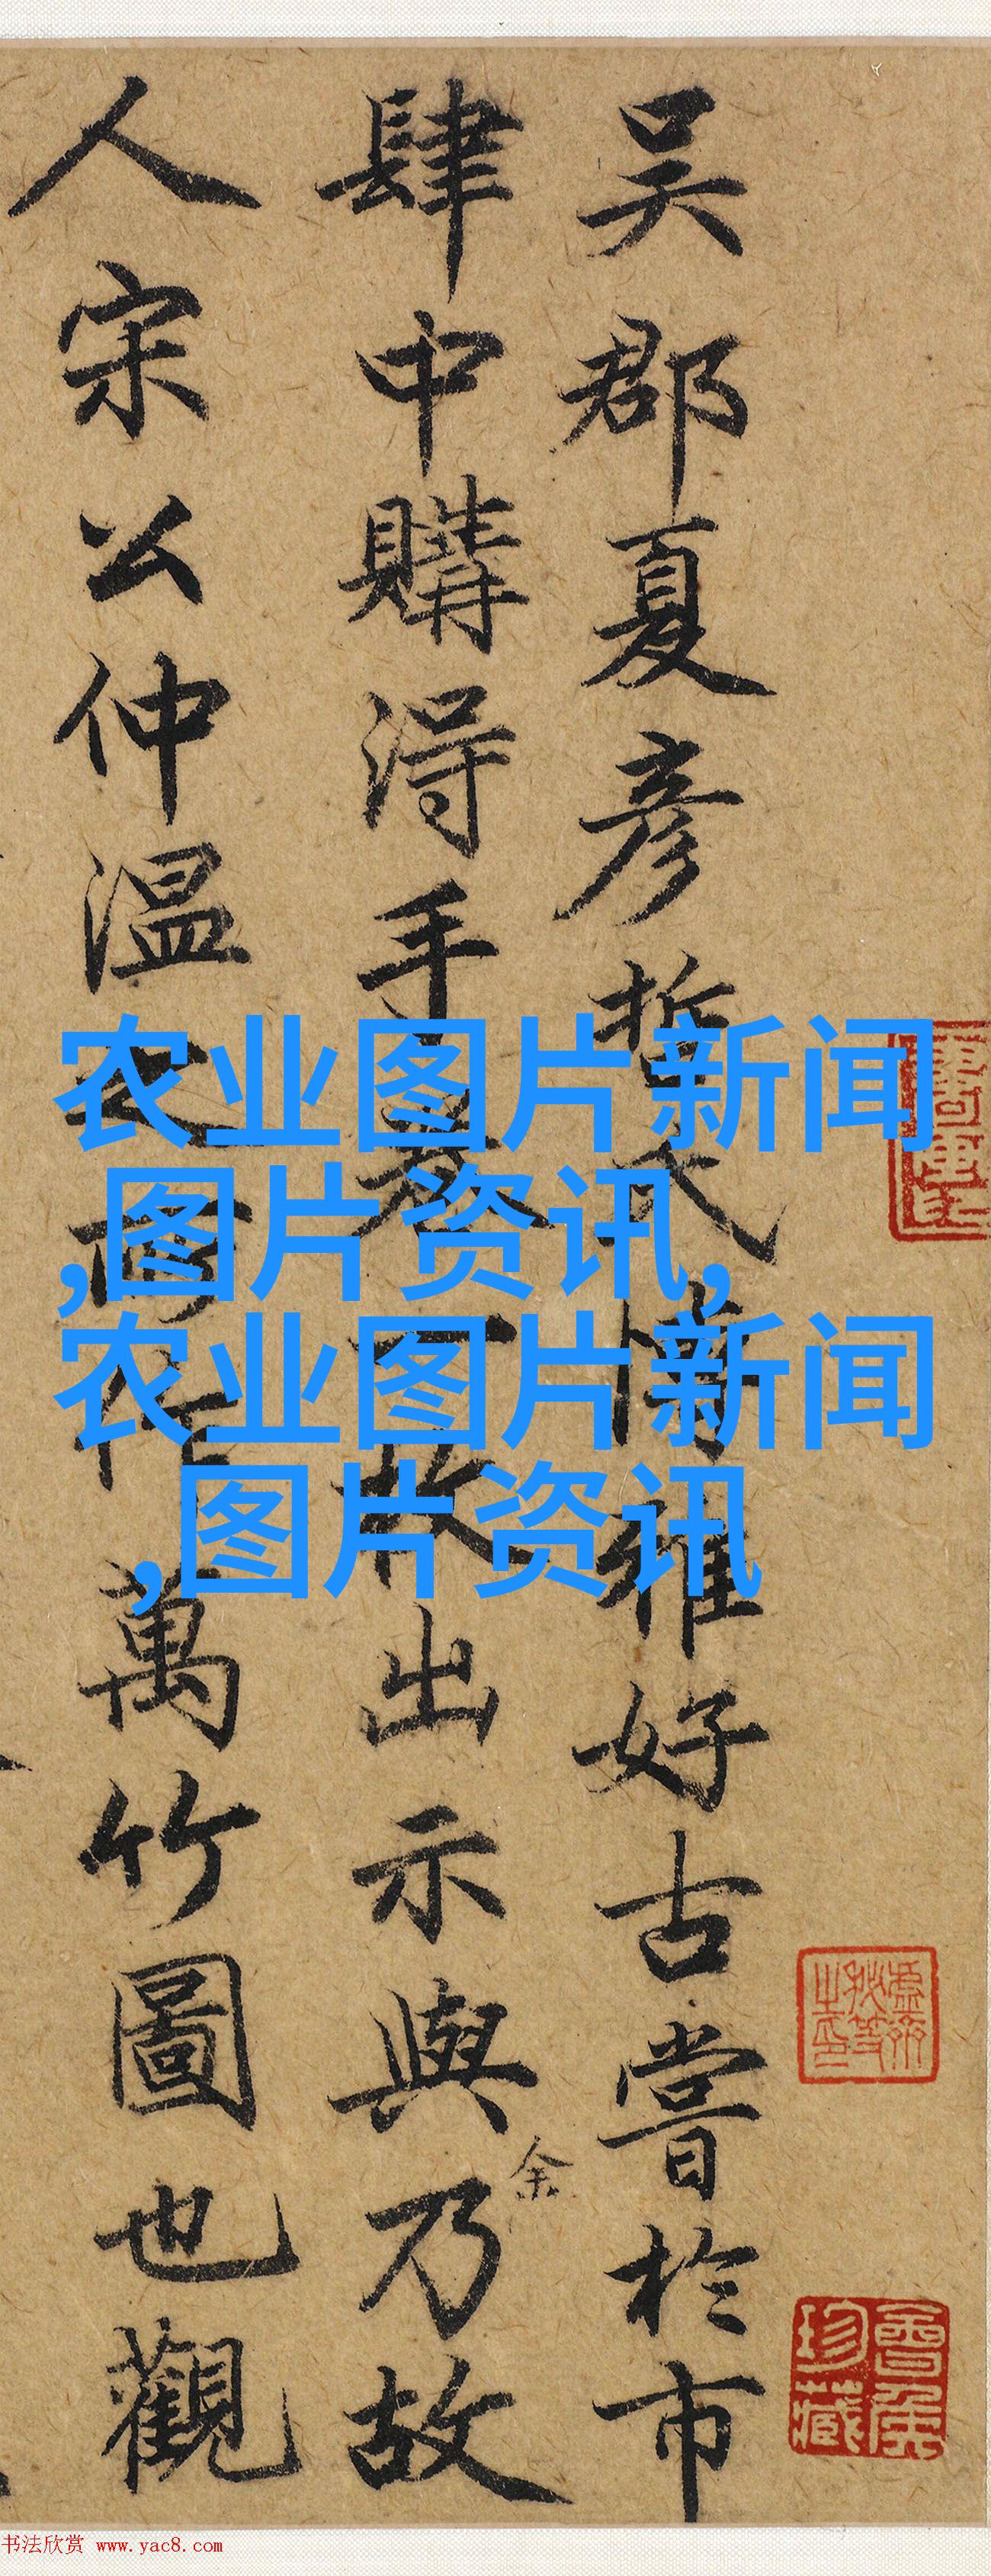 吴郡夏彦哲博雅好古嘗於市
肆中購得手卷一枚出示與余乃故
人宋公仲温之所作萬竹圖也觀
农业图片新闻
,图片资讯,
农业图片新闻
,图片资讯
书法欣赏 www.yac8.com